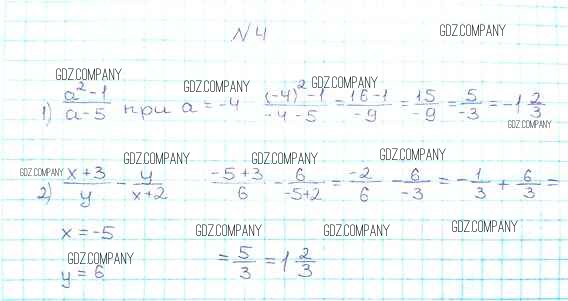 №4
GDZ.COMPANY
GDZ.COMPANY GDZ.COMPANY GDZ.COMPANY
1) (a² - 1)/(a - 5) при a = -4 ((-4)² - 1)/(-4 - 5) = (16 - 1)/(-9) = 15/(-9) = 5/(-3) = -1 2/3
GDZ.COMPANY
GDZ.COMPANY GDZ.COMPANY GDZ.COMPANY GDZ.COMPANY
2) (x + 3)/y - y/(x + 2) (-5 + 3)/6 - 6/(-5 + 2) = (-2)/6 - 6/(-3) = -1/3 + 6/3 =
x = -5 GDZ.COMPANY GDZ.COMPANY GDZ.COMPANY
GDZ.COMPANY
y = 6 = 5/3 = 1 2/3